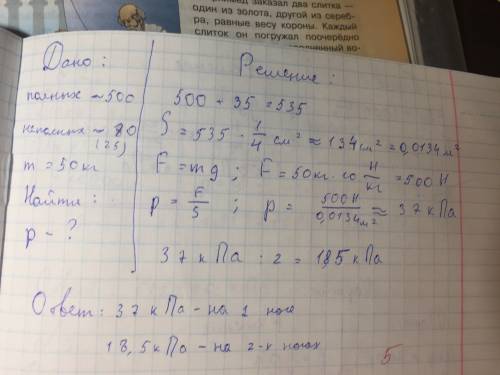 мед заказал два слитка —
один из золота, другой из сереб-
ра, равные весу короны. Каждый
слиток он погружал поочерёдно
Дано:
полных ~ 500
неполных ~ 80
(25)
m = 50 кг
Найти:
p - ?
Решение:
500 + 35 = 535
S = 535 · 1/4 см² ≈ 134 см² = 0,0134 м²
F = mg ; F = 50кг · 10 Н/кг = 500 Н
p = F/S ; p = 500Н/0,0134м² ≈ 37 кПа
37 кПа : 2 = 18,5 кПа
Ответ: 37 кПа - на 1 ноге
18,5 кПа - на 2-х ногах
5